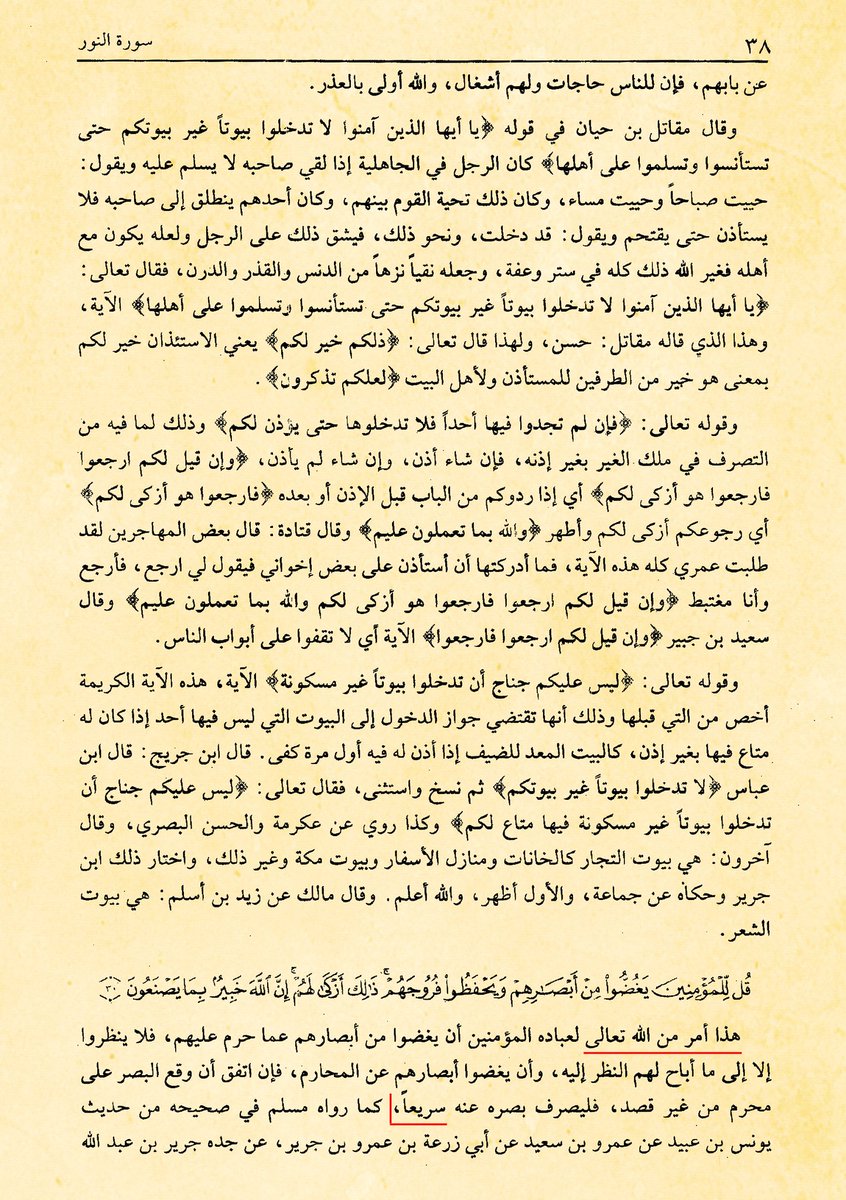 ٣٨
سورة النور
عن بابهم، فإن للناس حاجات ولهم أشغال، والله أولى بالعذر.
وقال مقاتل بن حيان في قوله ﴿يا أيها الذين آمنوا لا تدخلوا بيوتاً غير بيوتكم حتى
تستأنسوا وتسلموا على أهلها﴾ كان الرجل في الجاهلية إذا لقي صاحبه لا يسلم عليه ويقول:
حييت صباحاً وحييت مساء، وكان ذلك تحية القوم بينهم، وكان أحدهم ينطلق إلى صاحبه فلا
يستأذن حتى يقتحم ويقول: قد دخلت، ونحو ذلك، فيشق ذلك على الرجل ولعله يكون مع
أهله فغير الله ذلك كله في ستر وعفة، وجعله نقياً نزهاً من الدنس والقذر والدرن، فقال تعالى:
﴿يا أيها الذين آمنوا لا تدخلوا بيوتاً غير بيوتكم حتى تستأنسوا وتسلموا على أهلها﴾ الآية،
وهذا الذي قاله مقاتل: حسن، ولهذا قال تعالى: ﴿ذلكم خير لكم﴾ يعني الاستئذان خير لكم
بمعنى هو خير من الطرفين للمستأذن ولأهل البيت ﴿لعلكم تذكرون﴾.
وقوله تعالى: ﴿فإن لم تجدوا فيها أحداً فلا تدخلوها حتى يؤذن لكم﴾ وذلك لما فيه من
التصرف في ملك الغير بغير إذنه، فإن شاء أذن، وإن شاء لم يأذن، ﴿وإن قيل لكم ارجعوا
فارجعوا هو أزكى لكم﴾ أي إذا ردوكم من الباب قبل الإذن أو بعده ﴿فارجعوا هو أزكى لكم﴾
أي رجوعكم أزكى لكم وأطهر ﴿والله بما تعملون عليم﴾ وقال قتادة: قال بعض المهاجرين لقد
طلبت عمري كله هذه الآية، فما أدركتها أن أستأذن على بعض إخواني فيقول لي ارجع، فأرجع
وأنا مغتبط ﴿وإن قيل لكم ارجعوا فارجعوا هو أزكى لكم والله بما تعملون عليم﴾ وقال
سعيد بن جبير ﴿وإن قيل لكم ارجعوا فارجعوا﴾ الآية أي لا تقفوا على أبواب الناس.
وقوله تعالى: ﴿ليس عليكم جناح أن تدخلوا بيوتاً غير مسكونة﴾ الآية، هذه الآية الكريمة
أخص من التي قبلها وذلك أنها تقتضي جواز الدخول إلى البيوت التي ليس فيها أحد إذا كان له
متاع فيها بغير إذن، كالبيت المعد للضيف إذا أذن له فيه أول مرة كفى. قال ابن جريج: قال ابن
عباس ﴿لا تدخلوا بيوتاً غير بيوتكم﴾ ثم نسخ واستثنى، فقال تعالى: ﴿ليس عليكم جناح أن
تدخلوا بيوتاً غير مسكونة فيها متاع لكم﴾ وكذا روي عن عكرمة والحسن البصري، وقال
آخرون: هي بيوت التجار كالخانات ومنازل الأسفار وبيوت مكة وغير ذلك، واختار ذلك ابن
جرير وحكاه عن جماعة، والأول أظهر، والله أعلم. وقال مالك عن زيد بن أسلم: هي بيوت
الشعر.
قُل لِّلْمُؤْمِنِينَ يَغُضُّوا۟ مِنْ أَبْصَـٰرِهِمْ وَيَحْفَظُوا۟ فُرُوجَهُمْ ۚ ذَٰلِكَ أَزْكَىٰ لَهُمْ ۗ إِنَّ ٱللَّهَ خَبِيرٌۢ بِمَا يَصْنَعُونَ ٣٠
هذا أمر من الله تعالى لعباده المؤمنين أن يغضوا من أبصارهم عما حرم عليهم، فلا ينظروا
إلا إلى ما أباح لهم النظر إليه، وأن يغضوا أبصارهم عن المحارم، فإن اتفق أن وقع البصر على
محرم من غير قصد، فليصرف بصره عنه سريعاً، كما رواه مسلم في صحيحه من حديث
يونس بن عبيد عن عمرو بن سعيد عن أبي زرعة بن عمرو بن جرير، عن جده جرير بن عبد الله